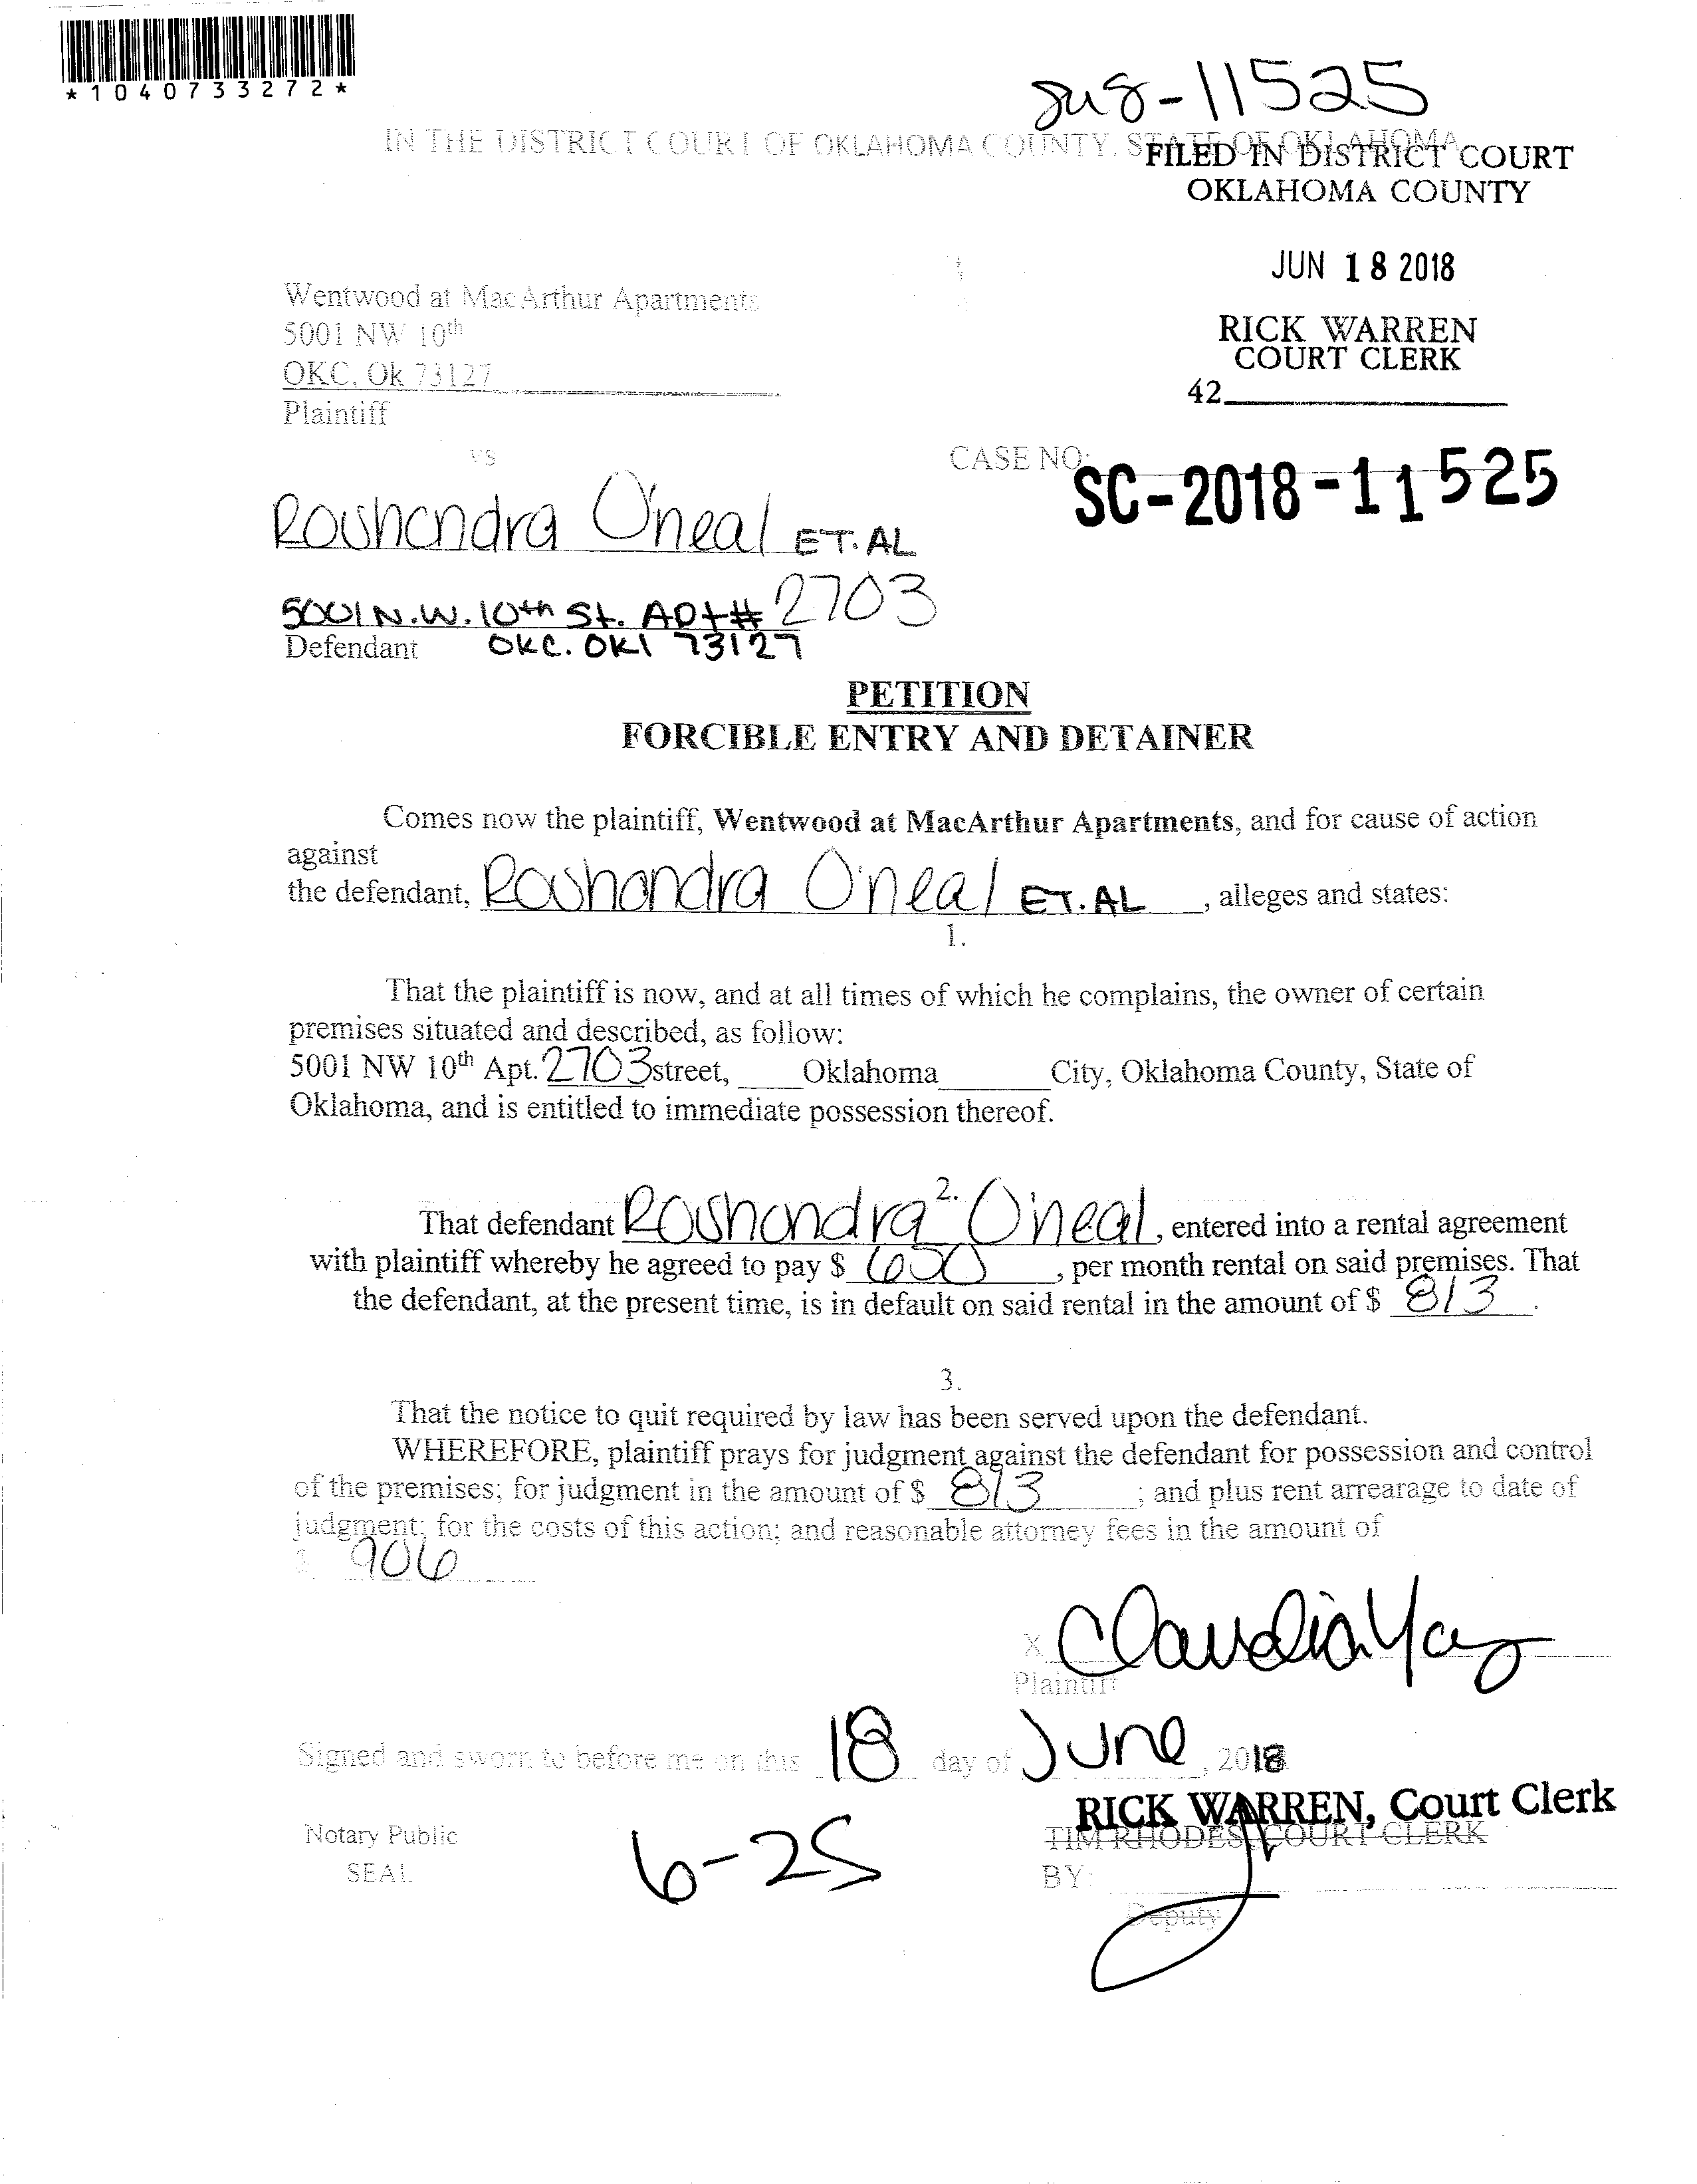 *1040733272*
IN THE DISTRICT COURT OF OKLAHOMA COUNTY, STATE OF OKLAHOMA
FILED IN DISTRICT COURT
OKLAHOMA COUNTY
JUN 18 2018
RICK WARREN
COURT CLERK
42
Wentwood at MacArthur Apartments
5001 NW 10th
OKC, Ok 73127
Plaintiff
vs
CASE NO:
SC-2018-11525
Rashandra O'neal ET. AL
5001 N.W. 10th St. Apt# 2703
Defendant OKC. OKl 73127
PETITION
FORCIBLE ENTRY AND DETAINER
Comes now the plaintiff, Wentwood at MacArthur Apartments, and for cause of action
against
the defendant, Rashandra O'neal ET. AL, alleges and states:
1.
That the plaintiff is now, and at all times of which he complains, the owner of certain
premises situated and described, as follow:
5001 NW 10th Apt. 2703 street, Oklahoma City, Oklahoma County, State of
Oklahoma, and is entitled to immediate possession thereof.
2.
That defendant Rashondra O'neal, entered into a rental agreement
with plaintiff whereby he agreed to pay $ , per month rental on said premises. That
the defendant, at the present time, is in default on said rental in the amount of $ 813.
3.
That the notice to quit required by law has been served upon the defendant.
WHEREFORE, plaintiff prays for judgment against the defendant for possession and control
of the premises; for judgment in the amount of $ 813 ; and plus rent arrearage to date of
judgment; for the costs of this action; and reasonable attorney fees in the amount of
$ 906
X Claudia
Plaintiff
Signed and sworn to before me on this 18 day of June, 2018
RICK WARREN, Court Clerk
TIM RHODES, COURT CLERK
Notary Public
SEAL
6-25
BY:
Deputy